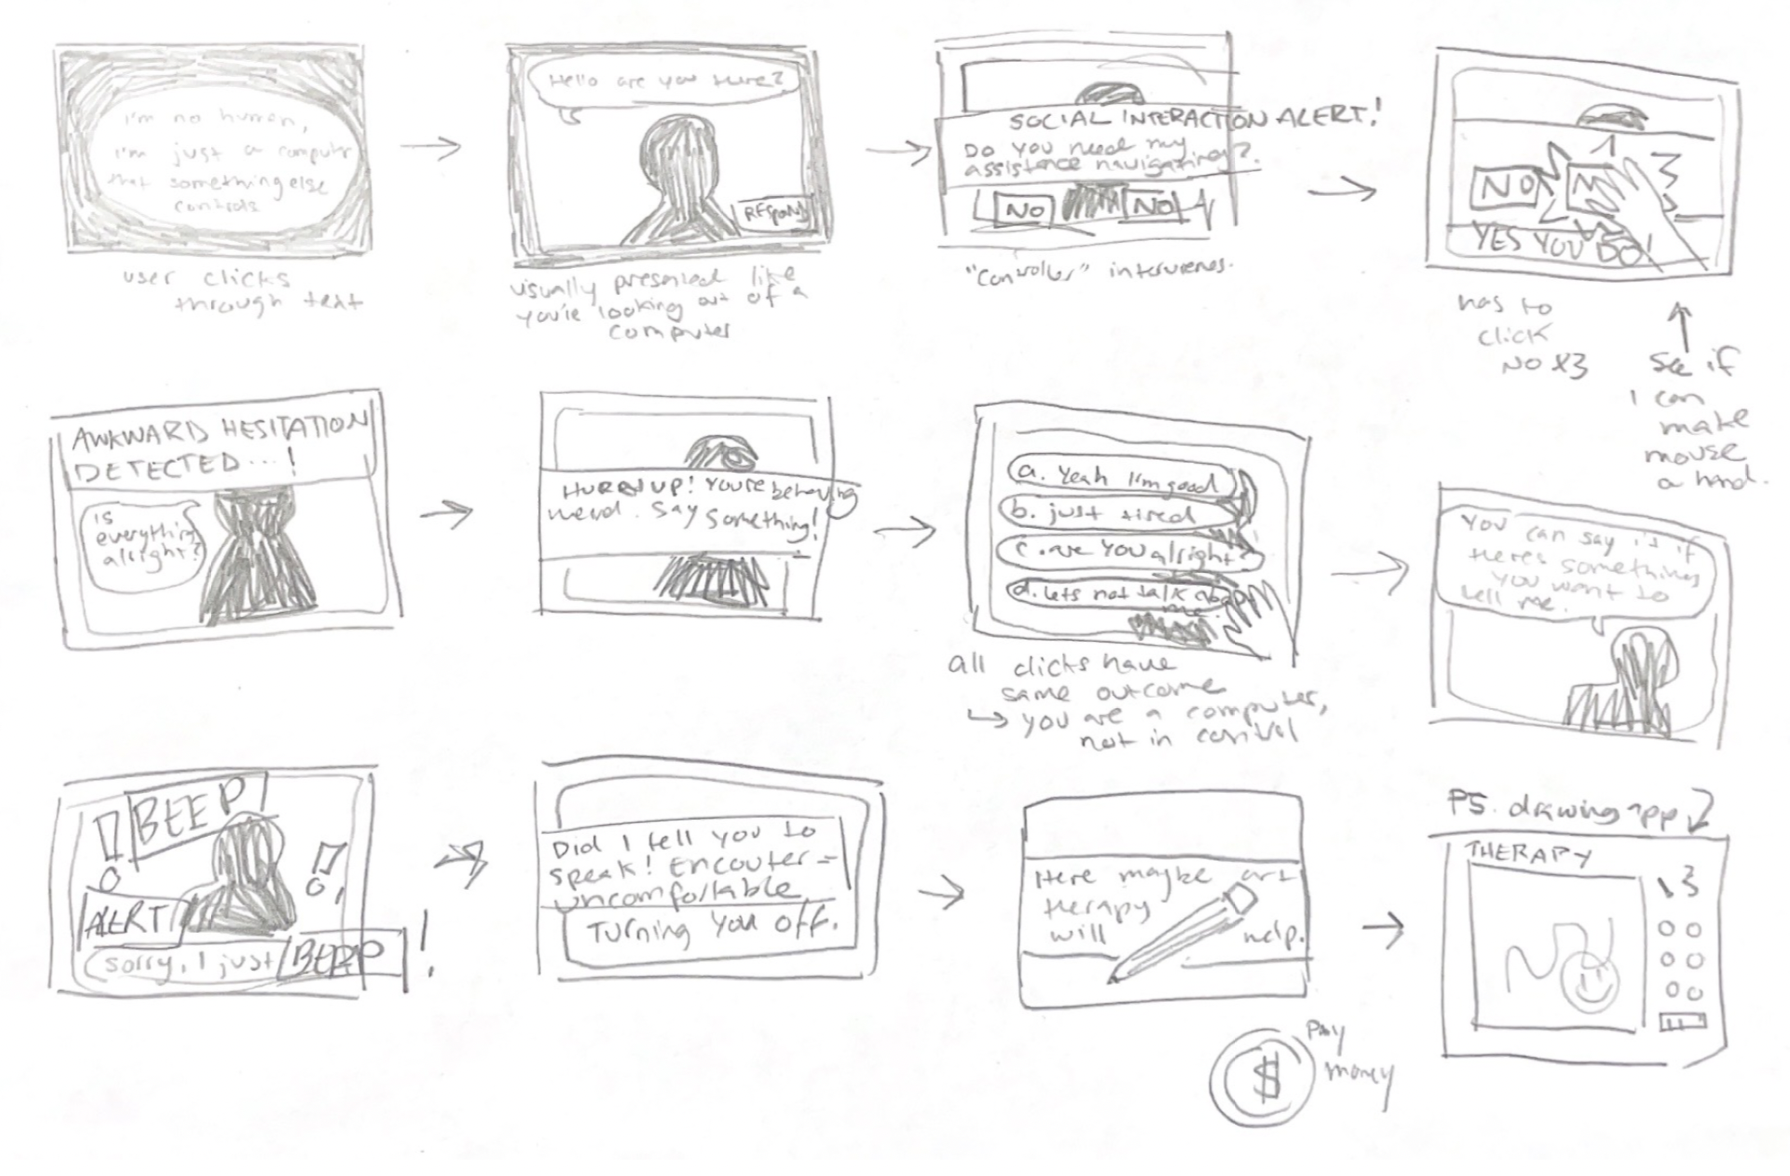 I'm no human,
I'm just a computer
that something else
controls
user clicks
through text
Hello are you there?
RESPOND
visually presented like
you're looking out of a
computer
SOCIAL INTERACTION ALERT!
Do you need my
assistance navigating?
NO
NO
"controller" intervenes.
NO
YES YOU DO!
has to
click
NO x3
see if
I can
make
mouse
a hand.
AWKWARD HESITATION
DETECTED...!
is
everything
alright?
HURRY UP! You're behaving
weird. Say something!
a. Yeah I'm good
b. just tired
c. are you alright
d. lets not talk about
me.
all clicks have
same outcome
↳ you are a computer,
not in control
You can say it if
theres something
you want to
tell me.
BEEP
!
!
ALERT
sorry, I just
BEEP
!
Did I tell you to
speak! Encouter =
uncomfortable
Turning you off.
Here maybe art
therapy
will help.
PAY
$
money
P5. drawing app
THERAPY